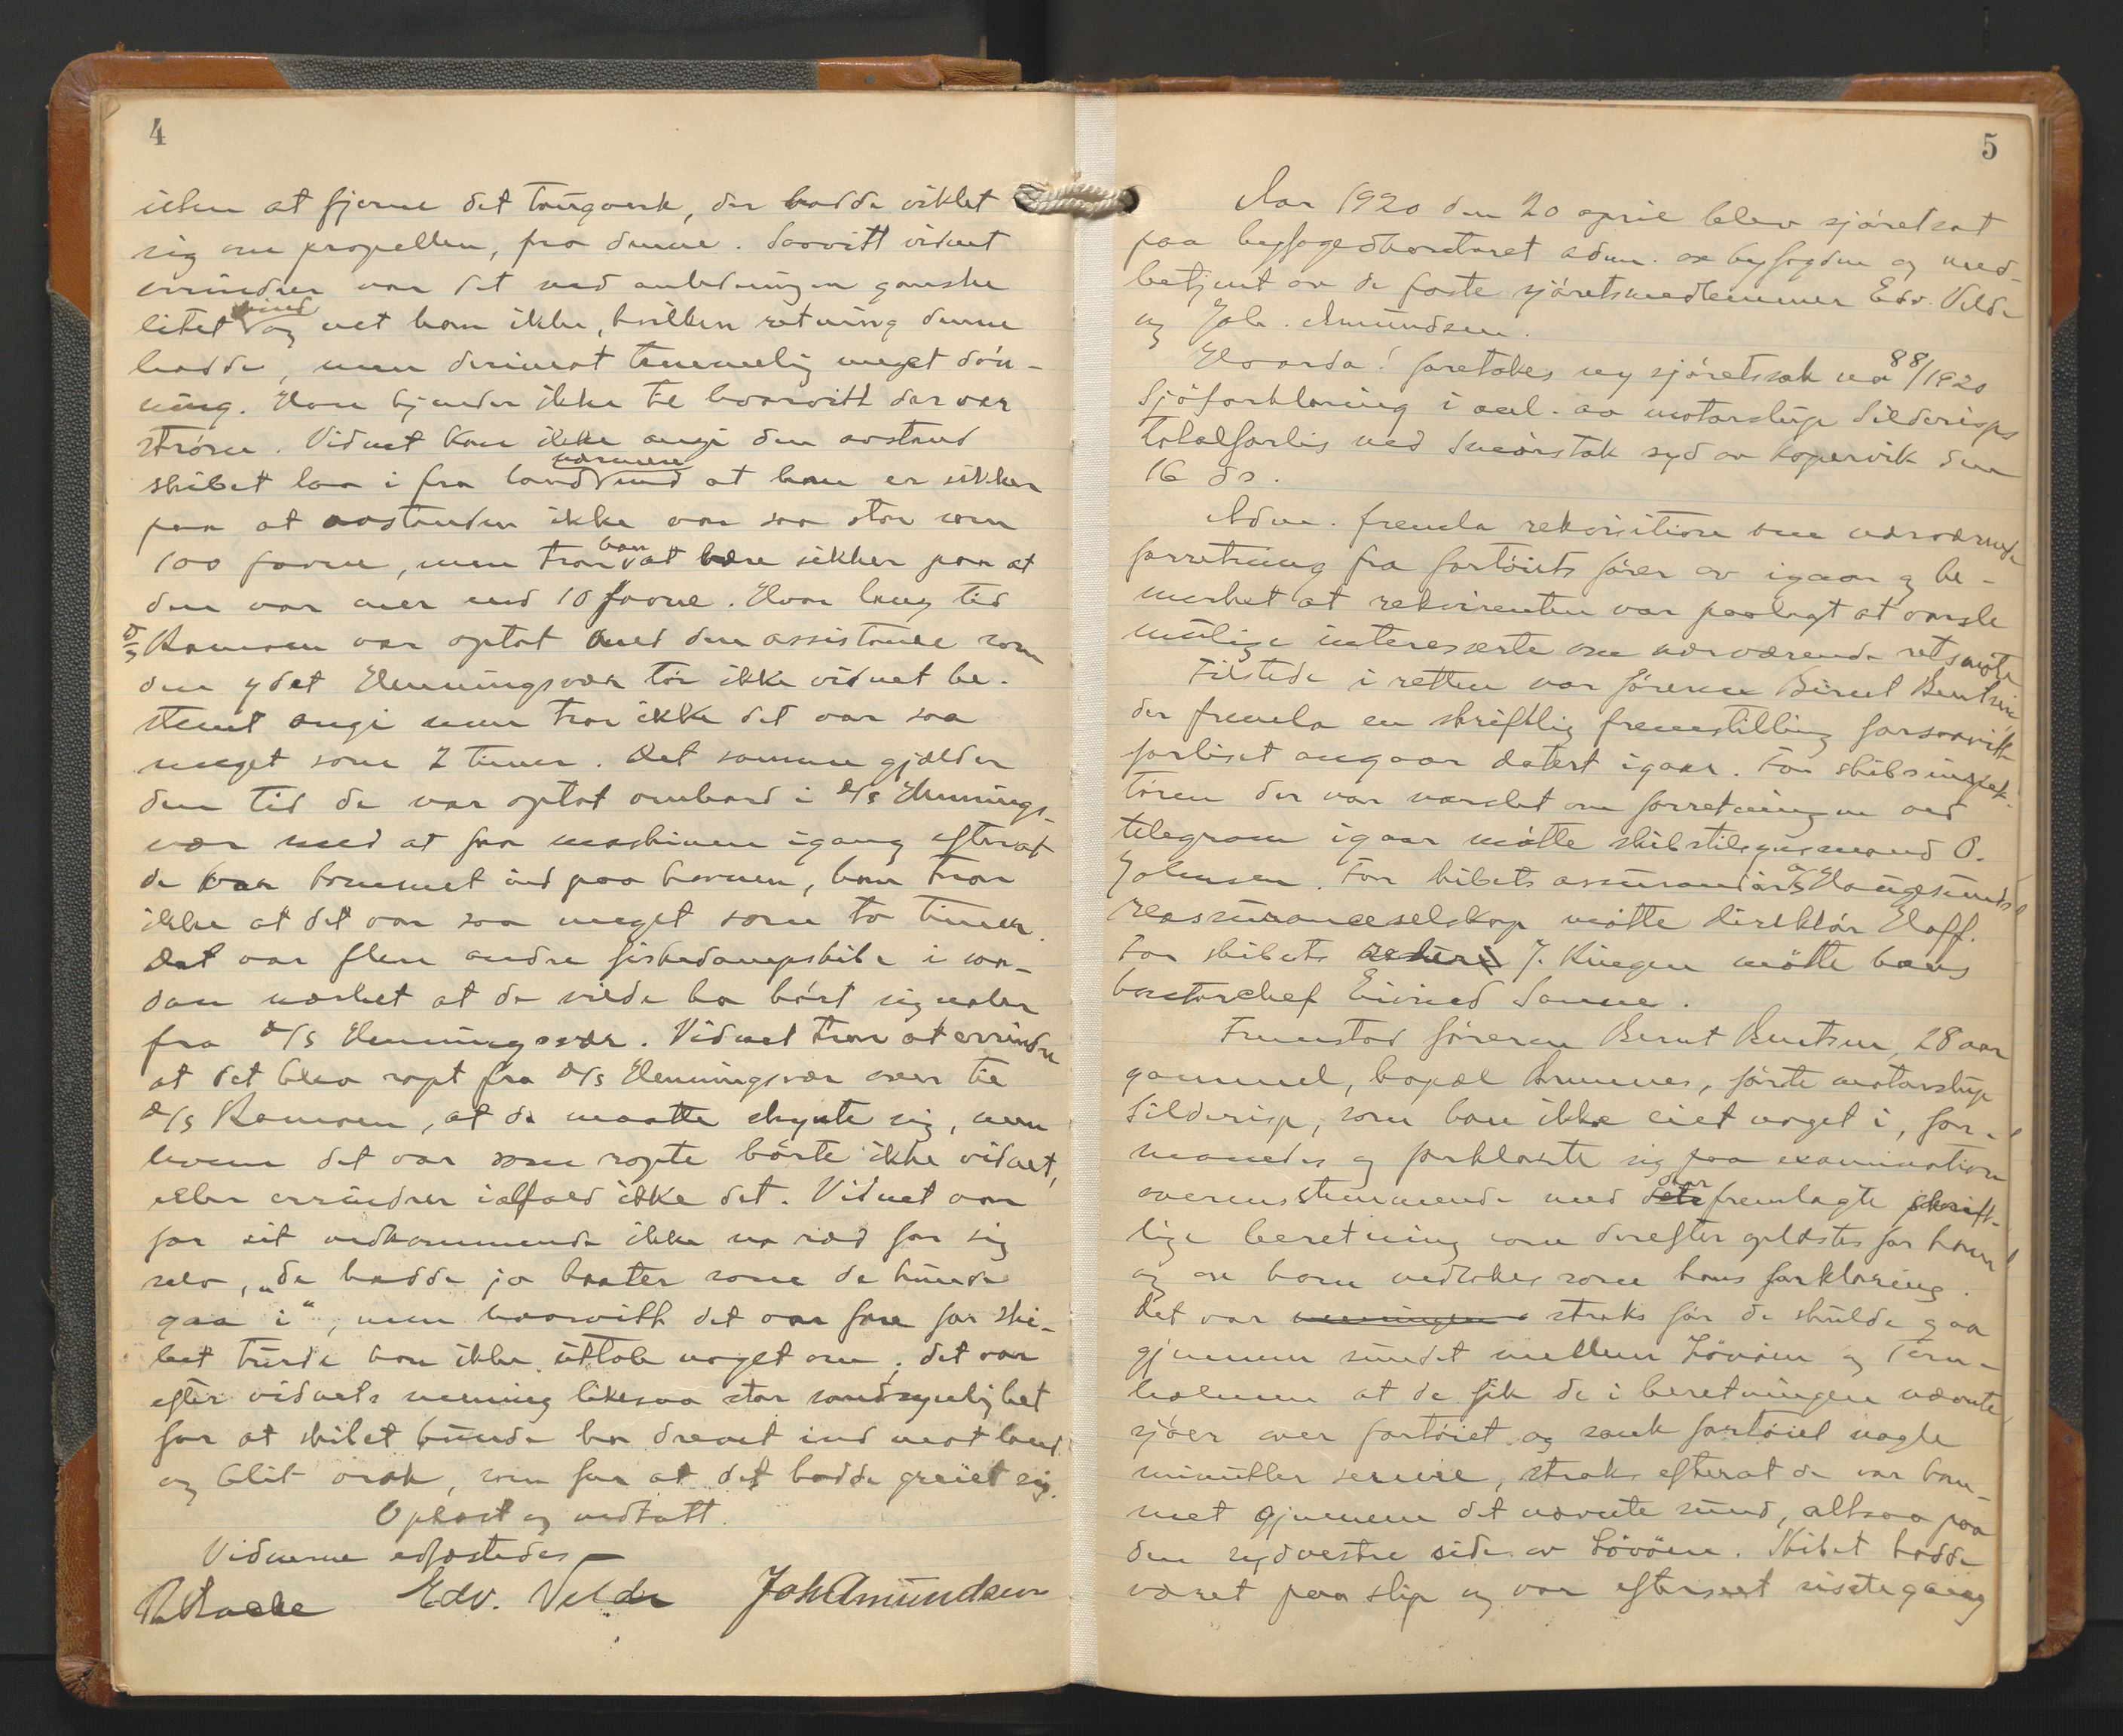 4
uten at fjerne det taugverk, der hadde viklet
sig om propellen, fra denne. Saavitt vidnet
erindrer var det ved anledningen ganske
litet vind og vet han ikke, hvilken retning denne
hadde, men derimot temmelig meget døn-
ning. Han kjender ikke til hvorvitt der var
strøm. Vidnet kan ikke angi den avstand
skibet laa i fra land nærmere end at han er sikker
paa at avstanden ikke var saa stor som
100 favne, men tror han at være sikker paa at
den var mer end 10 favne. Hvor lang tid
D/S Ramoen var optat med den assistanse som
den ydet Henningsvær tør ikke vidnet be-
stemt angi men tror ikke det var saa
meget som 2 timer. Det samme gjælder
den tid de var optat ombord i D/S Hennings-
vær med at faa maskinen igang efterat
de var kommet ind paa havnen, han tror
ikke at det var saa meget som to timer.
Det var flere andre fiskedampskibe i saa-
dan nærhet at de vilde ha hørt signaler
fra D/S Henningsvær. Vidnet tror at erindre
at det blev ropt fra D/S Henningsvær over til
D/S Ramoen, at de maatte skynte sig, men
hvem det var som ropte hørte ikke vidnet,
eller erindrer ialfald ikke det. Vidnet var
for sit vedkommende ikke no ræd for sig
selv, "de hadde jo baater som de kunde
gaa i", men hvorvitt det var fare for ski-
bet turde han ikke uttale noget om; det var
efter vidnets mening likesaa stor sandsynlighet
for at skibet kunde ha drevet ind mot land
og blit vrak, som for at det hadde greiet sig.
Oplæst og vedtatt.
Vidnerne edfæstedes
Edv. Velde Joh Amundsen
5
Aar 1920 den 20 april blev sjøret sat
paa byfogedkontoret adm. av byfogden og med-
betjent av de faste sjøretsmedlemmer Edv. Velde
og Joh. Amundsen.
Hvorda! foretokes ny sjøretssak no 88/1920
Sjøforklaring i anl. av motorslup Silderisps
totalforlis ved Sneørstak syd av Kopervik den
16 ds.
Adm. fremla rekvisition om nærværende
forretning fra fartøiets fører av igaar og be-
merket at rekvirenten var paalagt at varsle
mulige interesserte om nærværende retsmøte
Tilstede i retten var føreren Bernt Bentsen,
der fremla en skriftlig fremstilling forsaavitt
forliset angaar datert igaar. For skibsinspek-
tøren der var varslet om forretningen ved
telegram igaar møtte skibstilsynsmand O.
Johnsen. For skibets assurandør A/S Haugesunds
reassuranceselskap møtte direktør Hoff.
For skibets rederi J. Kingen møtte hans
kontorchef Eivind Sanne.
Fremstod føreren Bernt Bentsen, 28 aar
gammel, bopæl Bremnes, førte motorslup
Silderisp, som han ikke eiet noget i, for-
manedes og forklarte sig paa examination
overensstemmende med den fremlagte skrift-
lige beretning som derefter oplæstes for ham
og av ham vedtokes som hans forklaring.
Det var straks før de skulde gaa
gjennem sundet mellem Løvøen og Tern-
holmen at de fik de i beretningen nævnte
sjøer over fartøiet og sank fartøiet nogle
minutter senere, straks efterat de var kom-
met gjennem det nævnte sund, altsaa paa
den sydvestre side av Løvöen. Skibet hadde
været paa slip og var efterseet sidste gang